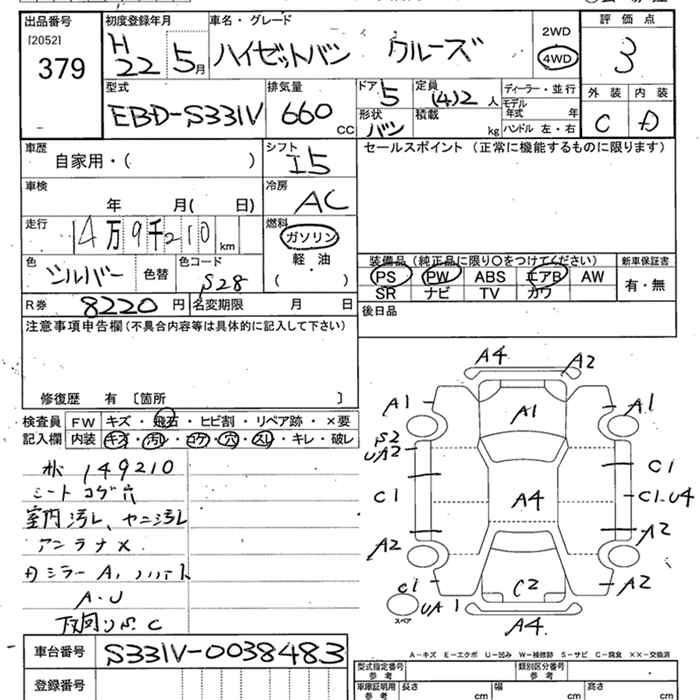 出品番号
[2052]
379
初度登録年月
H 22 5月
車名・グレード
ハイゼットバン クルーズ
2WD
4WD
評価点
3
型式
EBD-S331V
排気量
660 CC
ドア
5
形状
バン
定員
(4)2人
積載
kg
ディーラー・並行
モデル
年式 年
ハンドル 左・右
外装 内装
C D
車歴
自家用・( )
シフト
I5
セールスポイント (正常に機能するものに限ります)
車検
年 月( 日)
冷房
AC
走行
14万9千210km
燃料
ガソリン
軽・油
( )
色
シルバー
色替
色コード
S28
装備品(純正品に限り〇をつけてください)
PS PW ABS エアB AW
SR ナビ TV カワ
新車保証書
有・無
R券
8220円
名変期限 月 日
後日品
注意事項申告欄(不具合内容等は具体的に記入して下さい)
修復歴 有 〔箇所 〕
検査員
記入欄
FW キズ・飛石・ヒビ割・リペア跡・×要
内装 キズ・汚レ・コゲ・穴・スレ・キレ・破レ
149210
シートコゲ穴
室内汚レ、ヤニ汚レ
アンテナX
A・U
A4
A2
A1
A1
A1
S2
UA2
C1
C1
C1.U4
A4
A2
A2
C2
A2
C1
UA1
A4
スペア
A-キズ E-エクボ U-凹み W-補修跡 S-サビ C-腐食 ××-交換済
車台番号
S331V-0038483
登録番号
型式指定番号
参考
類別区分番号
参考
車庫証明用
参考
長さ cm
幅 cm
高さ cm